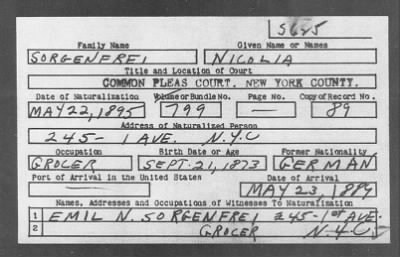 S625
Family Name Given Name or Names
SORGENFREI NICOLIA
Title and Location of Court
COMMON PLEAS COURT. NEW YORK COUNTY.
Date of Naturalization Volume or Bundle No. Page No. Copy of Record No.
MAY 22, 1895 799 — 89
Address of Naturalized Person
245-1 AVE. N.Y.C
Occupation Birth Date or Age Former Nationality
GROCER SEPT. 21, 1873 GERMAN
Port of Arrival in the United States Date of Arrival
— MAY 23, 1889
Names, Addresses and Occupations of Witnesses To Naturalization
1 EMIL N. SORGENFREI 245-1st AVE.
2 GROCER N.Y.C